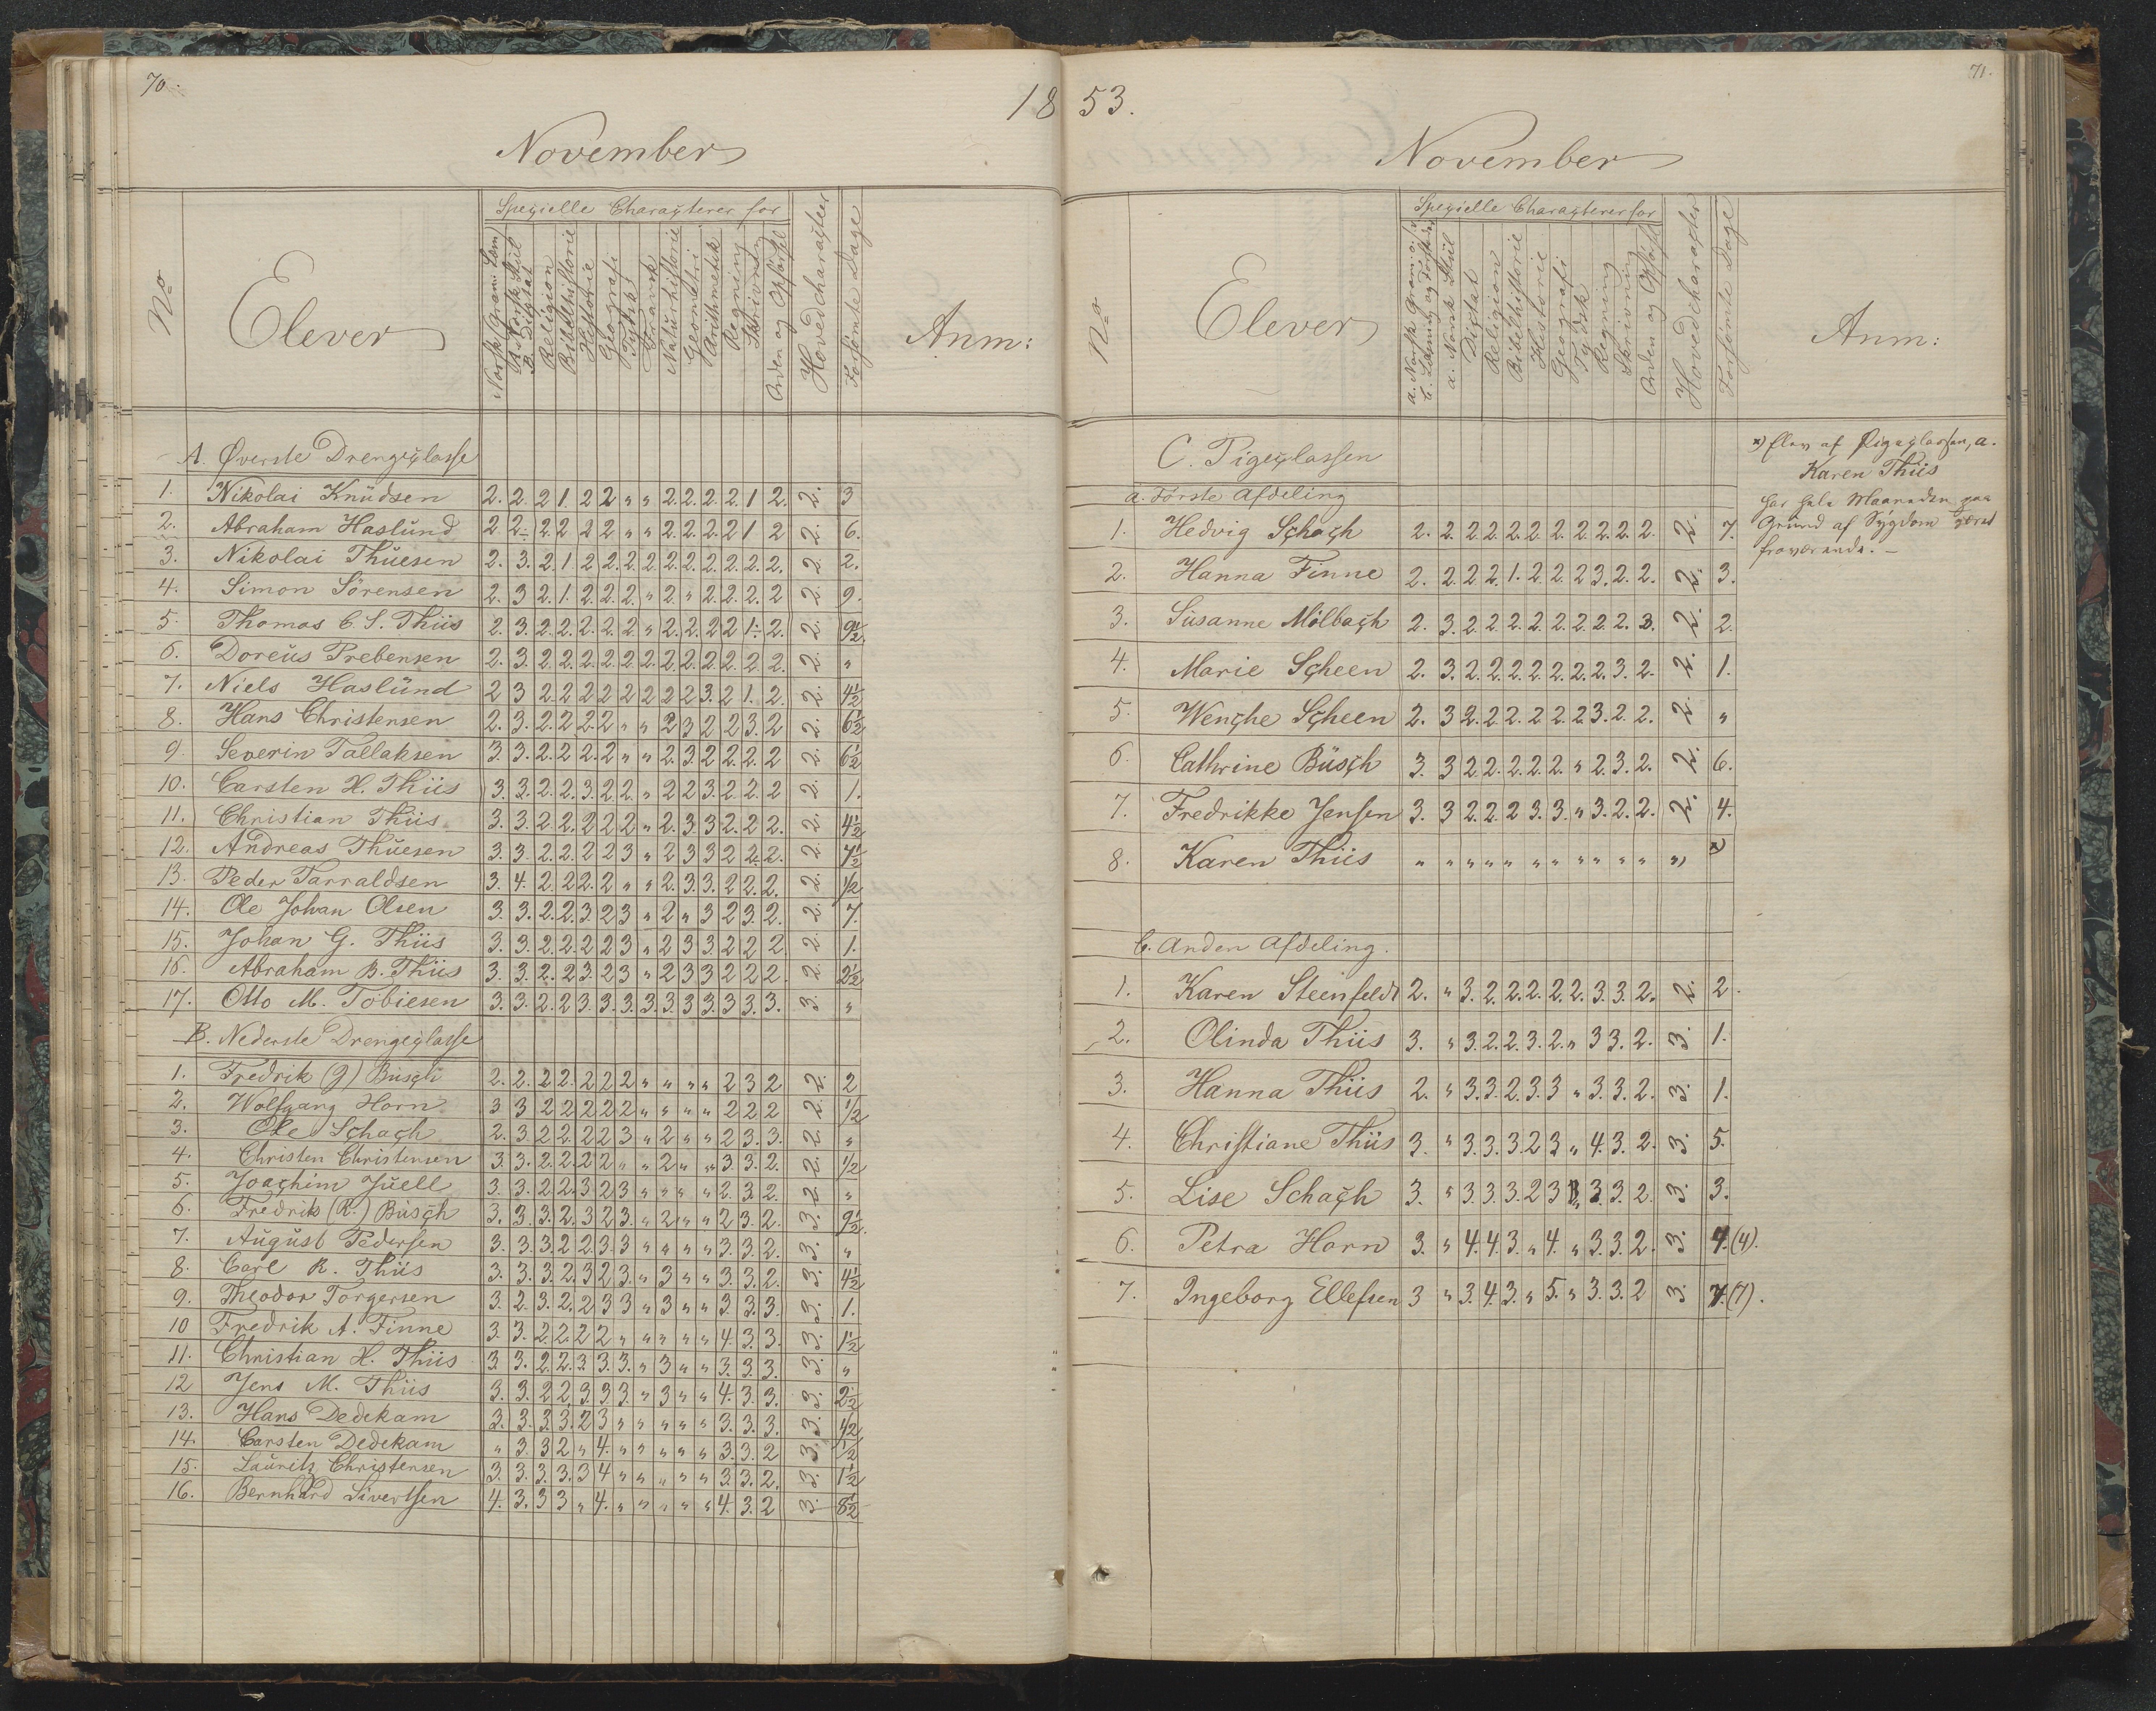 70.
18
November
No
Elever
Spezielle Characterer for
Norsk Gram: Læs
A. Norsk Stiil
B. Dictat
Religion
Bibelhistorie
Historie
Geografi
Tydsk
Fransk
Naturhistorie
Geometri
Arithmetik
Regning
Skrivning
Orden og Opførsel
Hovedcharacteer
Forsømte Dage
Anm:
A. Øverste Drengeclasse
1. Nikolai Knudsen 2. 2. 2 1. 2 2 " " 2. 2. 2. 2 1 2. 2. 3
2. Abraham Haslund 2 2. 2. 2 2 2 " " 2. 2. 2 2 1 2 2. 6.
3. Nikolai Thuesen 2. 3. 2. 1. 2 2. 2. 2 2. 2. 2. 2. 2. 2. 2. 2.
4. Simon Sörensen 2. 3 2. 1. 2. 2. 2. " 2. " 2. 2. 2. 2 2. 9.
5. Thomas C. S. Thiis 2. 3. 2. 2. 2. 2. 2 " 2. 2. 2 2 1. 2. 2. 9½
6. Doreus Prebensen 2. 3. 2. 2. 2. 2. 2. 2. 2. 2. 2. 2. 2. 2. 2. "
7. Niels Haslund 2 3 2. 2 2 2 2 2 2 2 3. 2 1. 2. 2. 4½
8. Hans Christensen 2. 3. 2. 2 2. 2 " " 2 3 2 2 3. 2 2. 6½
9. Severin Tallaksen 3. 3. 2. 2. 2. 2 " " 2. 3. 2. 2. 2. 2 2. 6½
10. Carsten H. Thiis 3. 3. 2. 2. 3. 2. 2. " 2 2 3. 2. 2. 2 2. 1.
11. Christian Thiis 3. 3. 2. 2. 2 2 2 " 2. 3. 3 2. 2 2. 2. 4½
12. Andreas Thuesen 3. 3. 2. 2. 2 2 3 " 2 3 3 2 2. 2. 2. 7½
13. Peder Tarraldsen 3. 4. 2. 2 2. 2 " " 2. 3. 3. 2 2. 2. 2. ½
14. Ole Johan Olsen 3. 3. 2. 2. 3. 2 3 " 2 " 3 2 3. 2. 2. 7.
15. Johan G. Thiis 3. 3. 2. 2. 2 2 3 " 2 3 3 2 2 2. 2. 1.
16. Abraham B. Thiis 3. 3. 2. 2 3. 2 3 " 2 3 3 2 2 2. 2. 2½
17. Otto M. Tobiesen 3. 3. 2. 2 3. 3. 3. 3. 3. 3 3. 3. 3. 3. 3. "
B. Nederste Drengeclasse
1. Fredrik (J) Busch 2. 2. 2 2. 2 2 2 " " " " 2 3 2 2. 2
2. Wolfgang Horn 3 3 2 2 2 2 2 " " " " 2 2 2 2. ½
3. Ole Schach 2. 3. 2 2. 2 2 3 " 2 " " 2 3. 3. 2. "
4. Christen Christensen 3. 3. 2. 2. 2 2 " " 2 " " 3. 3. 2. 2. ½
5. Joachim Juell 3. 3. 2 2. 3 2 3 " " " " 2. 3. 2. 2. "
6. Fredrik (R.) Busch 3. 3. 3. 2. 3 2 3. " 2 " " 2 3. 2. 3. 9½
7. August Pedersen 3. 3. 3. 2 2 3. 3 " " " " 3. 3. 2. 3. "
8. Carl R. Thiis 3. 3. 3. 2. 3 2 3. " 3 " " 3. 3. 2. 3. 4½
9. Theodor Torgersen 3. 2. 3. 2. 2 3 3 " 3 " " 3. 3. 3. 3. 1.
10 Fredrik A. Finne 3. 3. 2. 2. 2 2 " " " " " 4. 3. 3. 3. 1½
11. Christian H. Thiis 3. 3. 2. 2. 3. 3. 3. " 3 " " 3. 3. 3. 3. "
12 Jens M. Thiis 3. 3. 2 2. 3. 3. 3. " 3 " " 4. 3. 3. 3. 2½
13. Hans Dedekam 3. 3. 3. 3. 2 3 " " " " " 3. 3. 3. 3. ½
14. Carsten Dedekam " 3. 3 2. " 4. " " " " " 3. 3. 2 3. ½
15. Laurits Christensen 3. 3. 3. 3. 3 4 " " " " " 3. 3. 2. 3. 1½
16. Bernhard Sivertsen 4. 3. 3 3 " 4. " " " " " 4. 3. 2 3. 8½
71.
53.
November
No
Elever
Spezielle Characterer for
a. Norsk Gram:
b. Læsning og
a. Norsk Stiil
Dictat
Religion
Bibelhistorie
Historie
Geografi
Tydsk
Regning
Skrivning
Orden og Opførsel
Hovedcharacter
Forsømte Dage
Anm:
C. Pigeclassen
a. Första Afdeling
1. Hedvig Schach 2. 2. 2 2. 2. 2. 2. 2. 2. 2. 2. 2. 7.
2. Hanna Finne 2. 2. 2 2. 1. 2. 2. 2 3. 2. 2. 2. 3.
3. Susanne Mölbach 2. 3. 2. 2. 2. 2. 2. 2. 2. 2. 3. 2. 2.
4. Marie Scheen 2. 3. 2. 2. 2. 2. 2. 2. 2. 3. 2. 2. 1.
5. Wenche Scheen 2. 3 2. 2. 2. 2 2. 2. 2 3. 2. 2. 2. "
6. Cathrine Busch 3. 3 2. 2. 2. 2. 2. " 2. 3. 2. 2. 6.
7. Fredrikke Jensen 3. 3 2. 2. 2 3. 3. " 3. 2. 2. 2. 4.
8. Karen Thiis " " " " " " " " " " " "
x) Elev af Pigeclassen, a.
Karen Thiis
har hele Maaneden paa
Grund af Sygdom været
fraværende. –
b. Anden Afdeling.
1. Karen Steinfeldt 2. " 3. 2. 2. 2. 2. 2. 3. 3. 2. 2. 2.
2. Olinda Thiis 3. " 3. 2. 2. 3. 2. " 3 3. 2. 3. 1.
3. Hanna Thiis 2. " 3. 3. 2. 3. 3 " 3. 3. 2. 3. 1.
4. Christiane Thiis 3. " 3. 3. 3. 2 3 " 4. 3. 2. 3. 5.
5. Lise Schach 3. " 3. 3. 3. 2 3 " 3. 3. 2. 3. 3.
6. Petra Horn 3. " 4. 4. 3. " 4. " 3. 3. 2. 3. 4. (4).
7. Ingeborg Ellefsen 3 " 3. 4. 3. " 5. " 3. 3. 2 3. 7. (7).